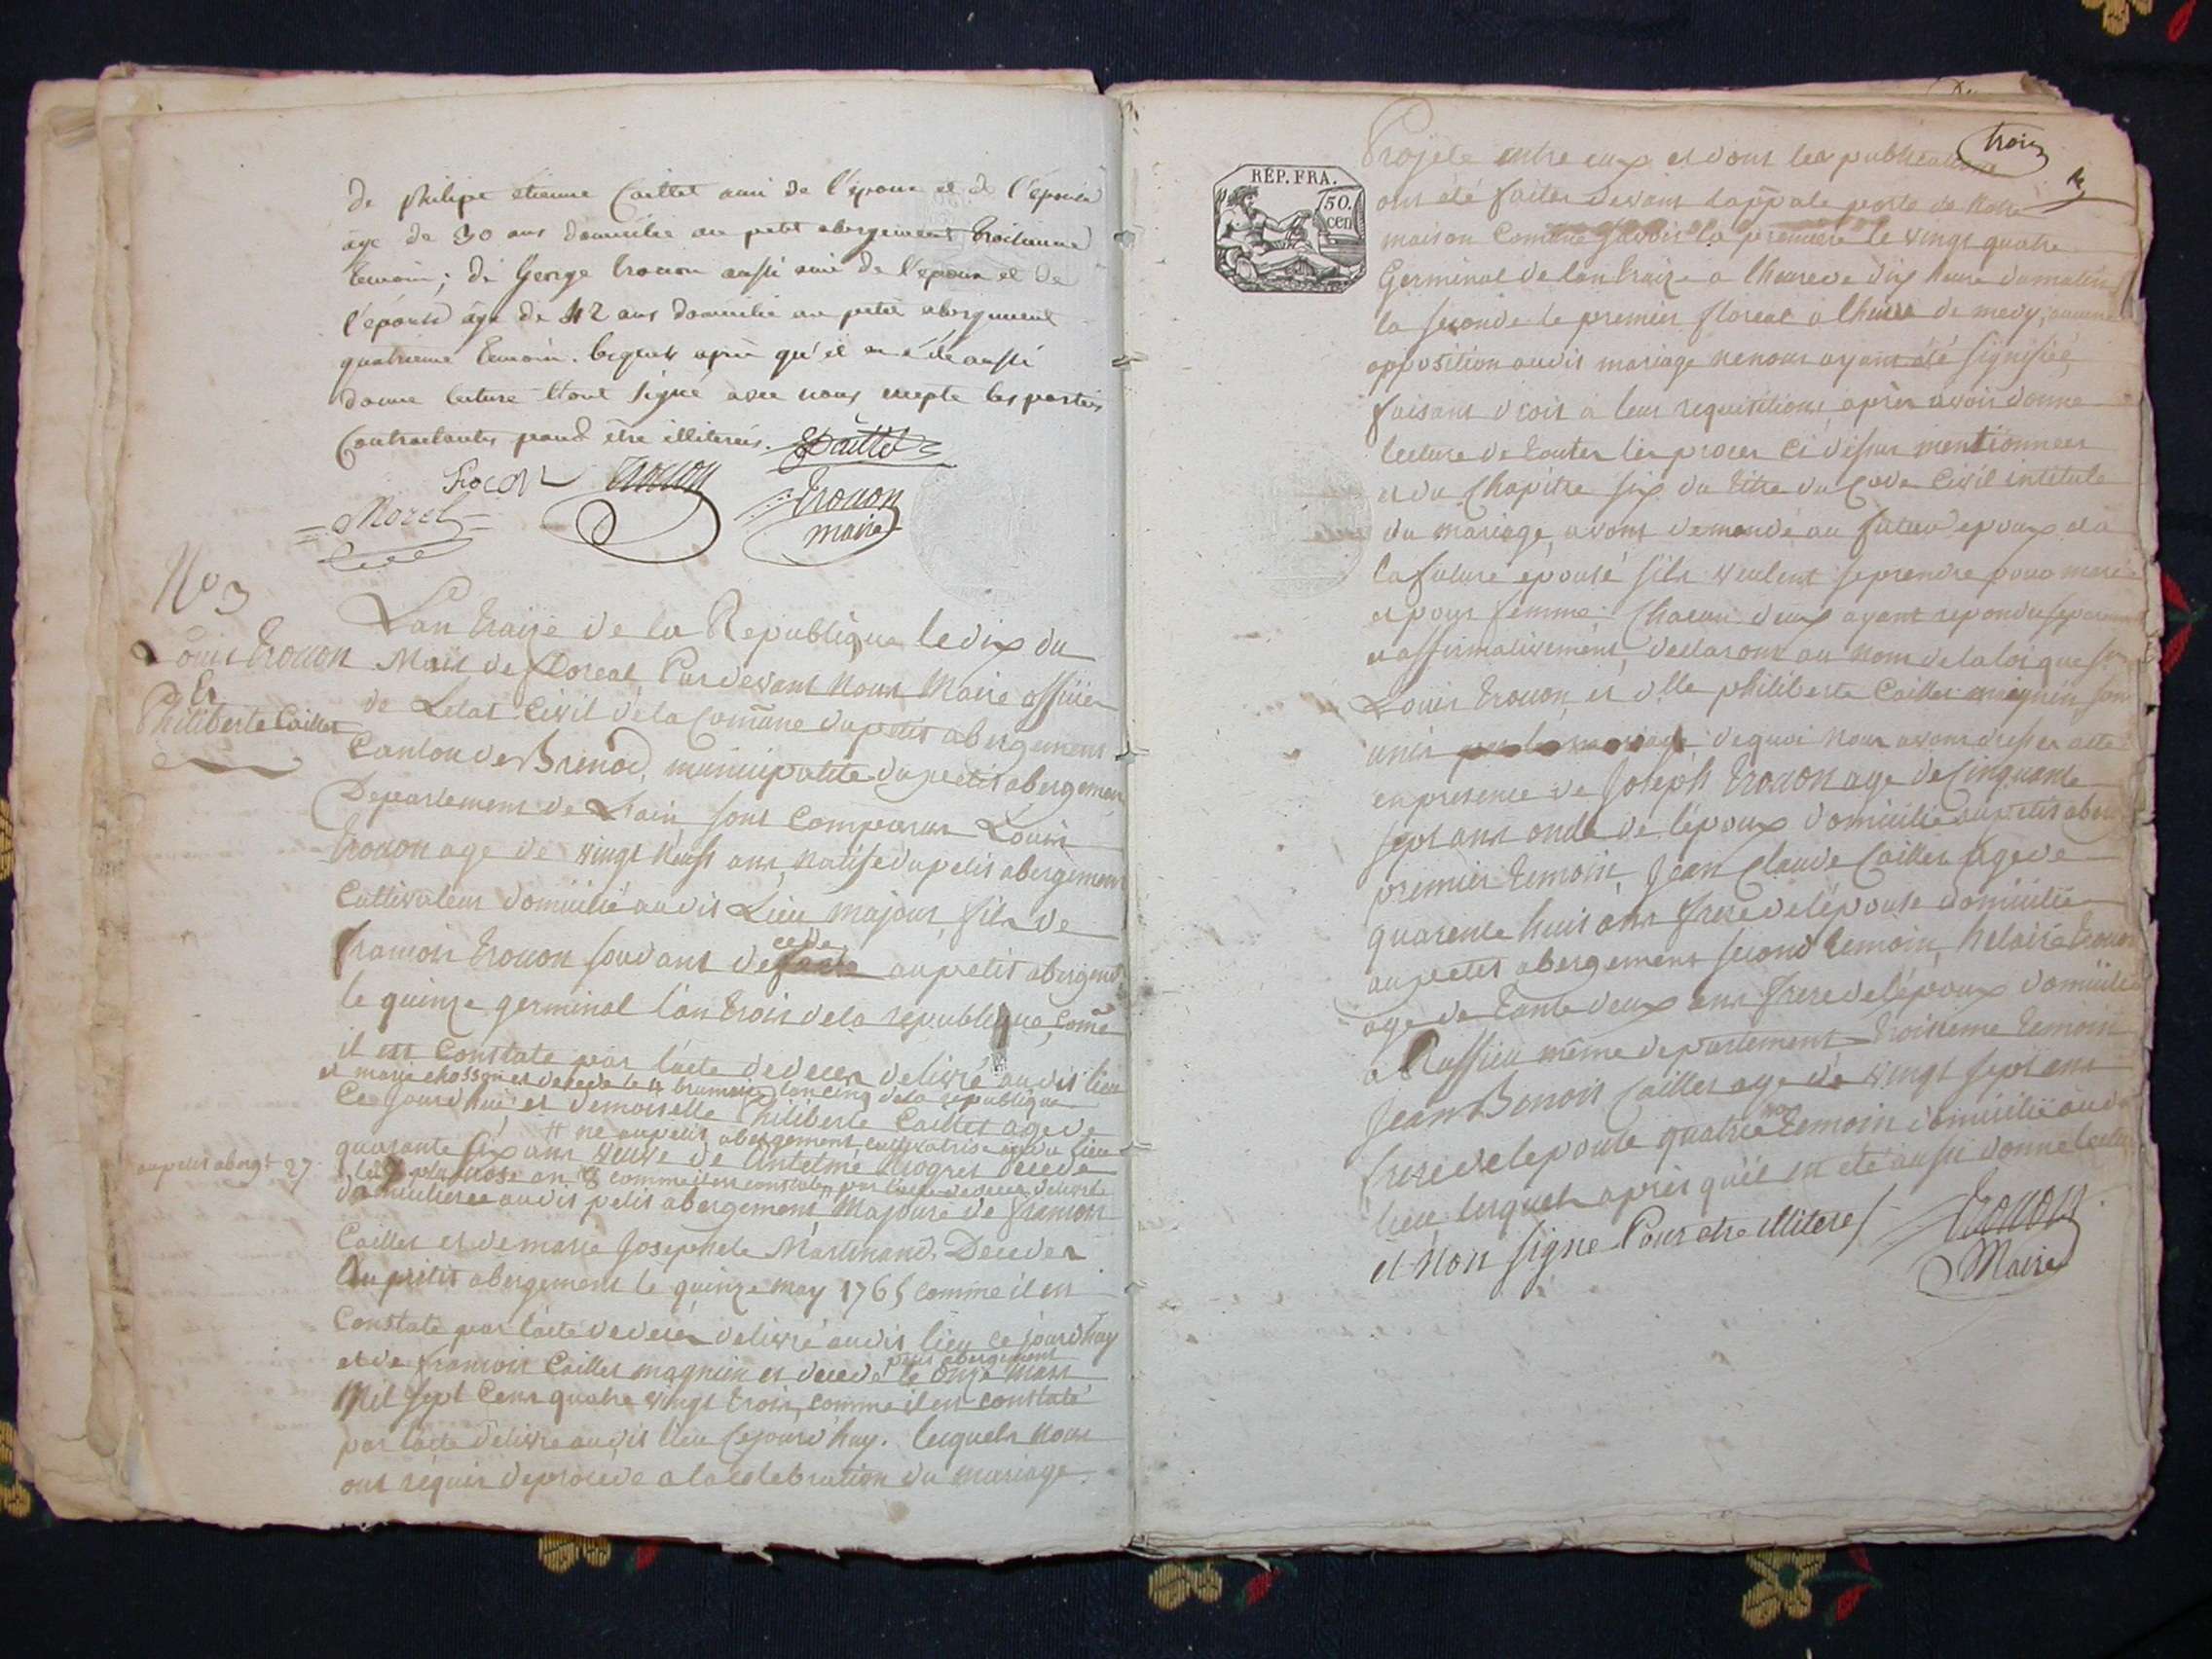 de philipe étienne Caillet ami de l'époux et de l'épouse
âge de 30 ans domicilié au petit abergement troisieme
temoin; de George trocon aussi ami de l'époux et de
l'épouse âge de 42 ans domicilié au petit abergement
quatrieme temoin. lesquels après qu'il en a été aussi
donné lecture l'ont signé avec nous excepte les parties
Contractantes pour être illiterés. Caillet
trocon
Morel
trocon
maire
No 3
Louis trocon
Et
Philiberte Caillet
Lan traize de la Republique le dix du
Mois de floreal Pardevant nous Maire officier
de Letat Civil dela Comune du petit abergement
Canton de Brenod, municipalité du petit abergement
Departement de Lain sont Comparus Louis
trocon age de vingt neuf ans, natife du petit abergement
Cultivateur domicilié audit Lieu majeur, fils de
framois trocon decede au petit abergemt
le quinze germinal l'an trois dela republique, come
il est Constate par l'acte de deces delivré audit lieu
et marie chosson est decede le 4 brumaire lan cinq dela republique
Ce jourd'hui et demoiselle Philiberte Caillet age de
# né au petit abergement cultivatrise audit Lieu
quarante six ans veuve de Antelme decede
au petit abergt 27
pluviose an 8 comme il en constate par l'acte de deces delivré
domiciliee audit petit abergement Majeure de framois
Caillet et de marie Josephete Martinand, Decedes
Au petit abergement le quinze may 1765 comme il en
Constate par l'acte de deces delivré audit lieu ce jourd'huy
petit abergement
et de framois Caillet magnin et decede le onze mars
Mil sept Cent quatre vingt trois, comme il en constate
par l'acte delivré audit lieu Cejourd'huy. lesquels nous
ont requis de procede a la celebration du mariage
trois
RÉP. FRA.
50.
cen
Projete entre eux et dont les publications
ont été faites devant la porte de notre
maison Comune savoir la premiere le vingt quatre
Germinal de lan traize a lheure de dix heure du matin
la seconde le premier floreal a lheure de medy, aucune
opposition audit mariage ne nous ayant été signifiée,
faisant droit a leur requisition, après avoir donne
lecture de toutes les pieces Ci dessus mentionnees
et du Chapitre six du titre du Code Civil intitule
du mariage, avons demande au futur epoux et a
la future epouse s'ils veulent se prendre pour marie
et pour femme: Chacun deux ayant repondu separement
et affirmativement, declarons au nom de la loi que
Louis trocon, et dlle philiberte Caillet magnin, sont
unis par le mariage de quoi nous avons dresser acte
en presence de Joseph trocon age de Cinquante
sept ans oncle de l'époux domicilié au petit aber
premier temoin, Jean Claude Caillet age de
quarente huit ans frere de lépouse domicilie
au petit abergement second temoin, helaire trocon
age de trante deux ans frere de lépoux domicilie
a Ruffieu même departement troisieme temoin
Jean Benoit Caillet age de vingt sept ans
frere de lepouse quatrieme temoin domicilié audit
lieu lesquels après qu'il en eté aussi donné lecture
et Non signe Pour etre illiteres
trocon
Maire